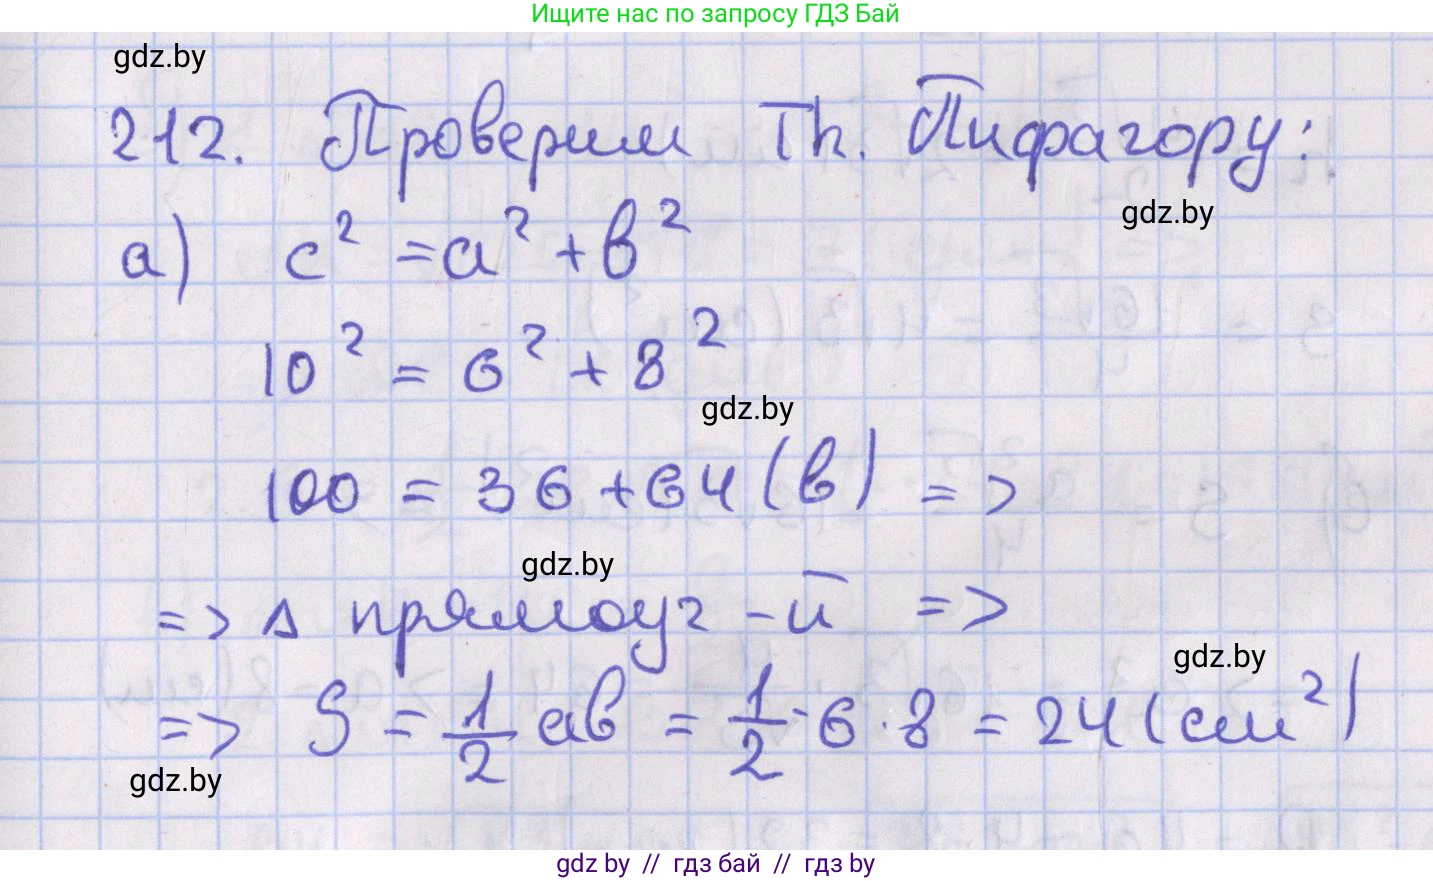 Ищите нас по запросу ГДЗ Бай
gdz.by
212. Проверим Th. Пифагору:
gdz.by
а) c² = a² + b²
10² = 6² + 8²
gdz.by
100 = 36 + 64 (в) =>
gdz.by
=> Δ прямоуг-й =>
gdz.by
=> S = 1/2 ab = 1/2 · 6 · 8 = 24 (см²)
gdz.by
gdz by // гдз бай // гдз by